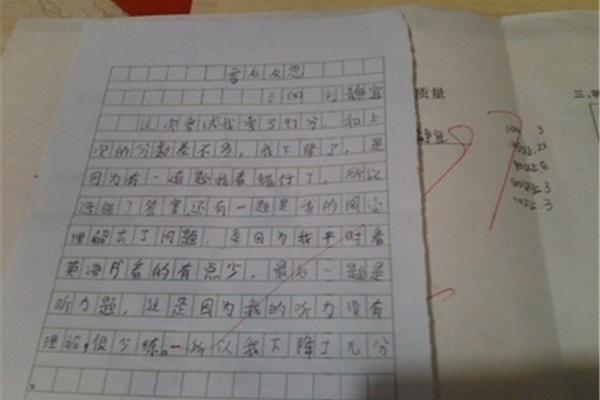 考后反思
三(4) 刘静宜
这次考试我考了97分，和上
次的分数差不多，我下降了，是
因为有一道题我看错行了，所以
选错了答案还有一题是我的阅读
理解出了问题，是因为我平时看
英语书看的有点少。最后一题是
听力题，这是因为我的听力没有
理解，很少练。所以我下降了几分
质量
静宜
97
三、